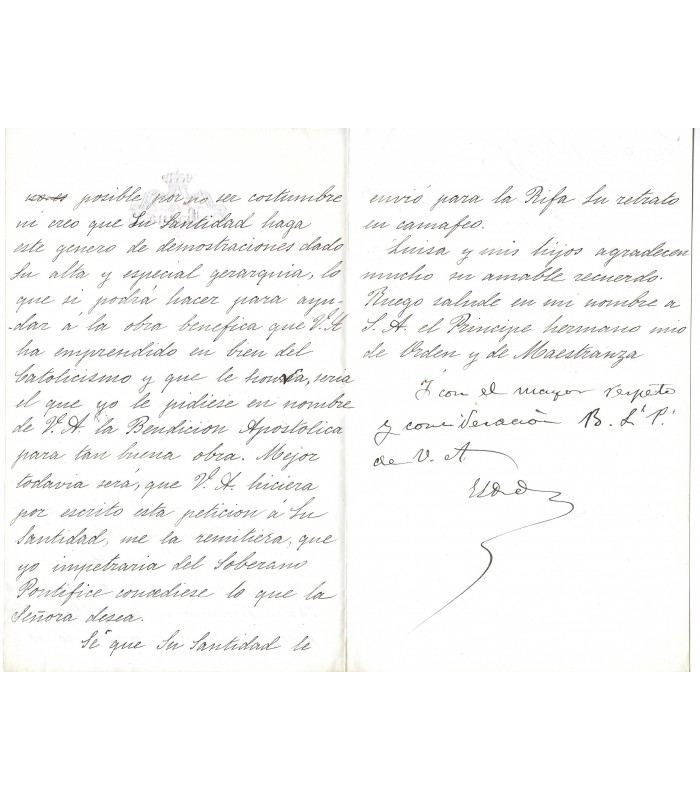 no es posible por no ser costumbre
ni creo que Su Santidad haga
este genero de demostraciones dado
Su alta y especial gerarquia, lo
que si podrá hacer para ayu-
-dar á la obra benefica que V. A
ha emprendido en bien del
Catolicismo y que le honra, seria
el que yo le pidiese en nombre
de V. A. la Bendicion Apostolica
para tan buena obra. Mejor
todavia será, que V. A. hiciera
por escrito esta peticion á Su
Santidad, me la remitiera, que
yo impetraria del Soberano
Pontifice concediese lo que la
Señora desea.
Sé que Su Santidad le
envió para la Rifa Su retrato
en camafeo.
Luisa y mis hijos agradecen
mucho su amable recuerdo.
Ruego salude en mi nombre a
S. A. el Principe hermano mio
de Orden y de Maestranza
Y con el mayor respeto
y consideración B. L. P.
de V. A